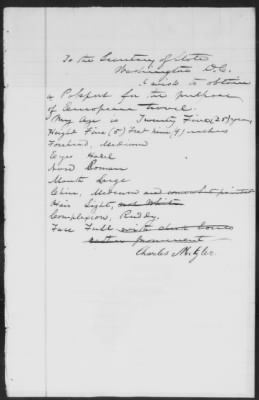 To the Secretary of State
Washington D.C.
I wish to obtain
a Passport for the purpose
of European Travel.
My Age is Twenty Five (25) years
Height Five (5) Feet nine (9) inches
Forehead, Medium
Eyes Hazel
Nose Roman
Mouth Large
Chin, Medium and somewhat pointed
Hair Light, not White
Complexion, Ruddy.
Face Full with cheek bones
rather prominent
Charles Metzler